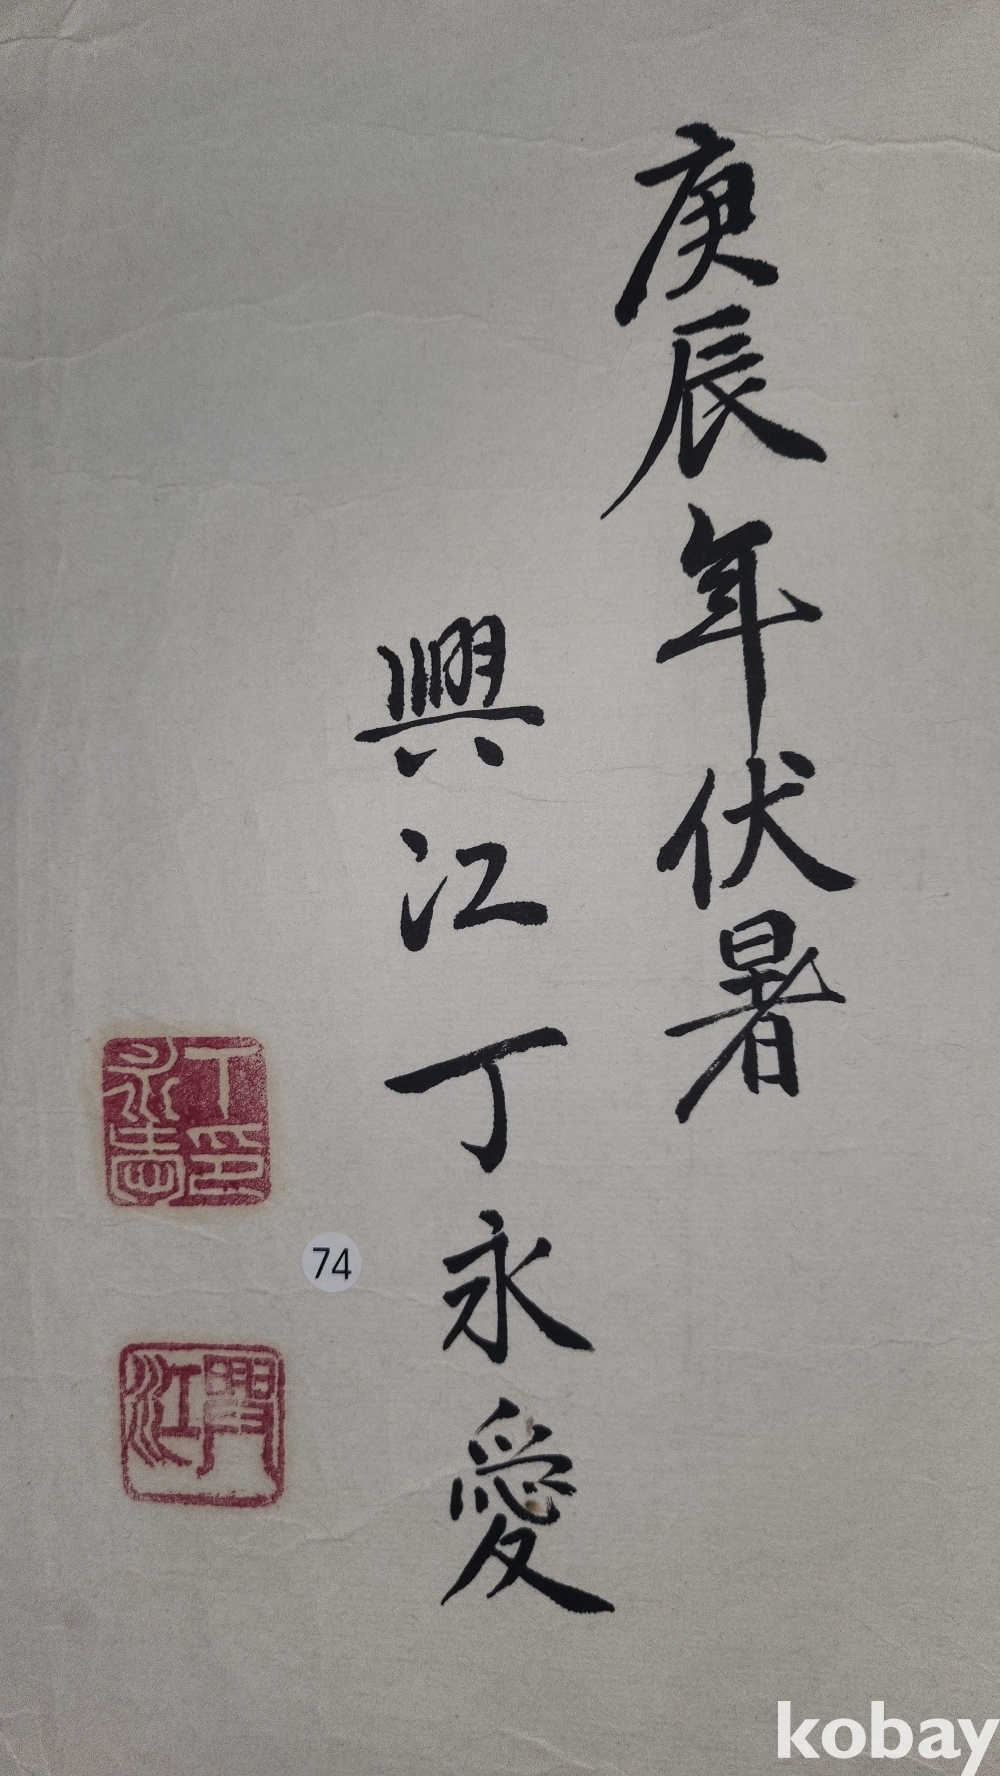 庚辰年伏暑
興江丁永愛
丁印
永
74
興江
kobay